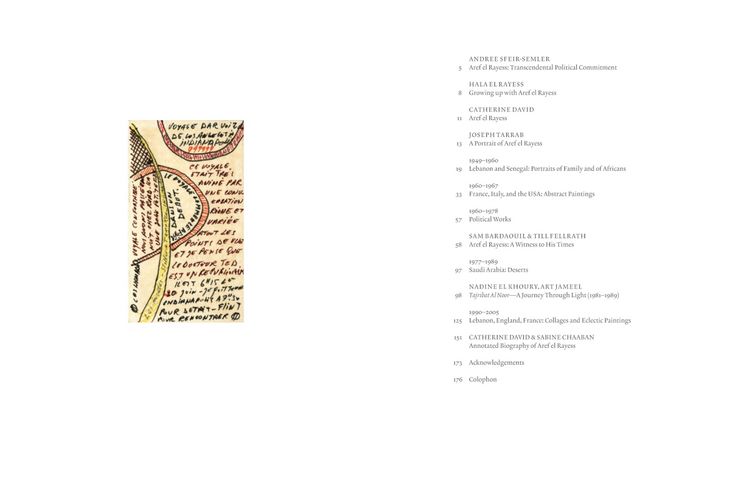 VOYAGE
DE LOS ANGELES À
INDIANA
CE VOYAGE
ETAIT TRES
ANIMÉ PAR
UNE CONV
ERSATION
ET
VARIÉE
LES
POINTS DE VUE
ET JE PENSE QUE
LE DOCTEUR TED.
EST UN
IL EST 6H15 LE
30 JUIN
INDIANA
POUR DETROIT-FLINT
POUR RENCONTRER
ANDREE SFEIR-SEMLER
5 Aref el Rayess: Transcendental Political Commitment
HALA EL RAYESS
8 Growing up with Aref el Rayess
CATHERINE DAVID
11 Aref el Rayess
JOSEPH TARRAB
13 A Portrait of Aref el Rayess
1949–1960
19 Lebanon and Senegal: Portraits of Family and of Africans
1960–1967
33 France, Italy, and the USA: Abstract Paintings
1960–1978
57 Political Works
SAM BARDAOUIL & TILL FELLRATH
58 Aref el Rayess: A Witness to His Times
1977–1989
97 Saudi Arabia: Deserts
NADINE EL KHOURY, ART JAMEEL
98 Tajribat Al Noor—A Journey Through Light (1981–1989)
1990–2005
125 Lebanon, England, France: Collages and Eclectic Paintings
151 CATHERINE DAVID & SABINE CHAABAN
Annotated Biography of Aref el Rayess
173 Acknowledgements
176 Colophon